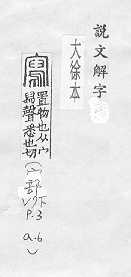 說文解字
大徐本
寫
置物也从宀
舄聲悉也切
(宀)部
V7下
P.3
a.6)